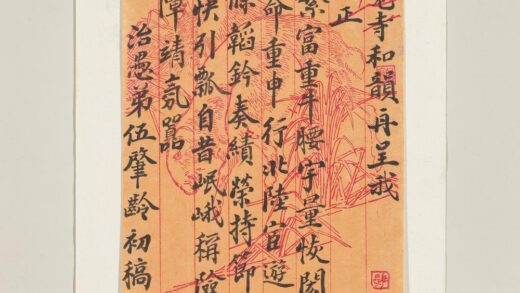 寺和韻再呈我
正
富重牛腰宇量恢
命重申行北陸宦遊
韜鈐奏績榮持節
快引瓢自昔岷峨稱
障靖氛囂
治愚弟伍肇齡初稿